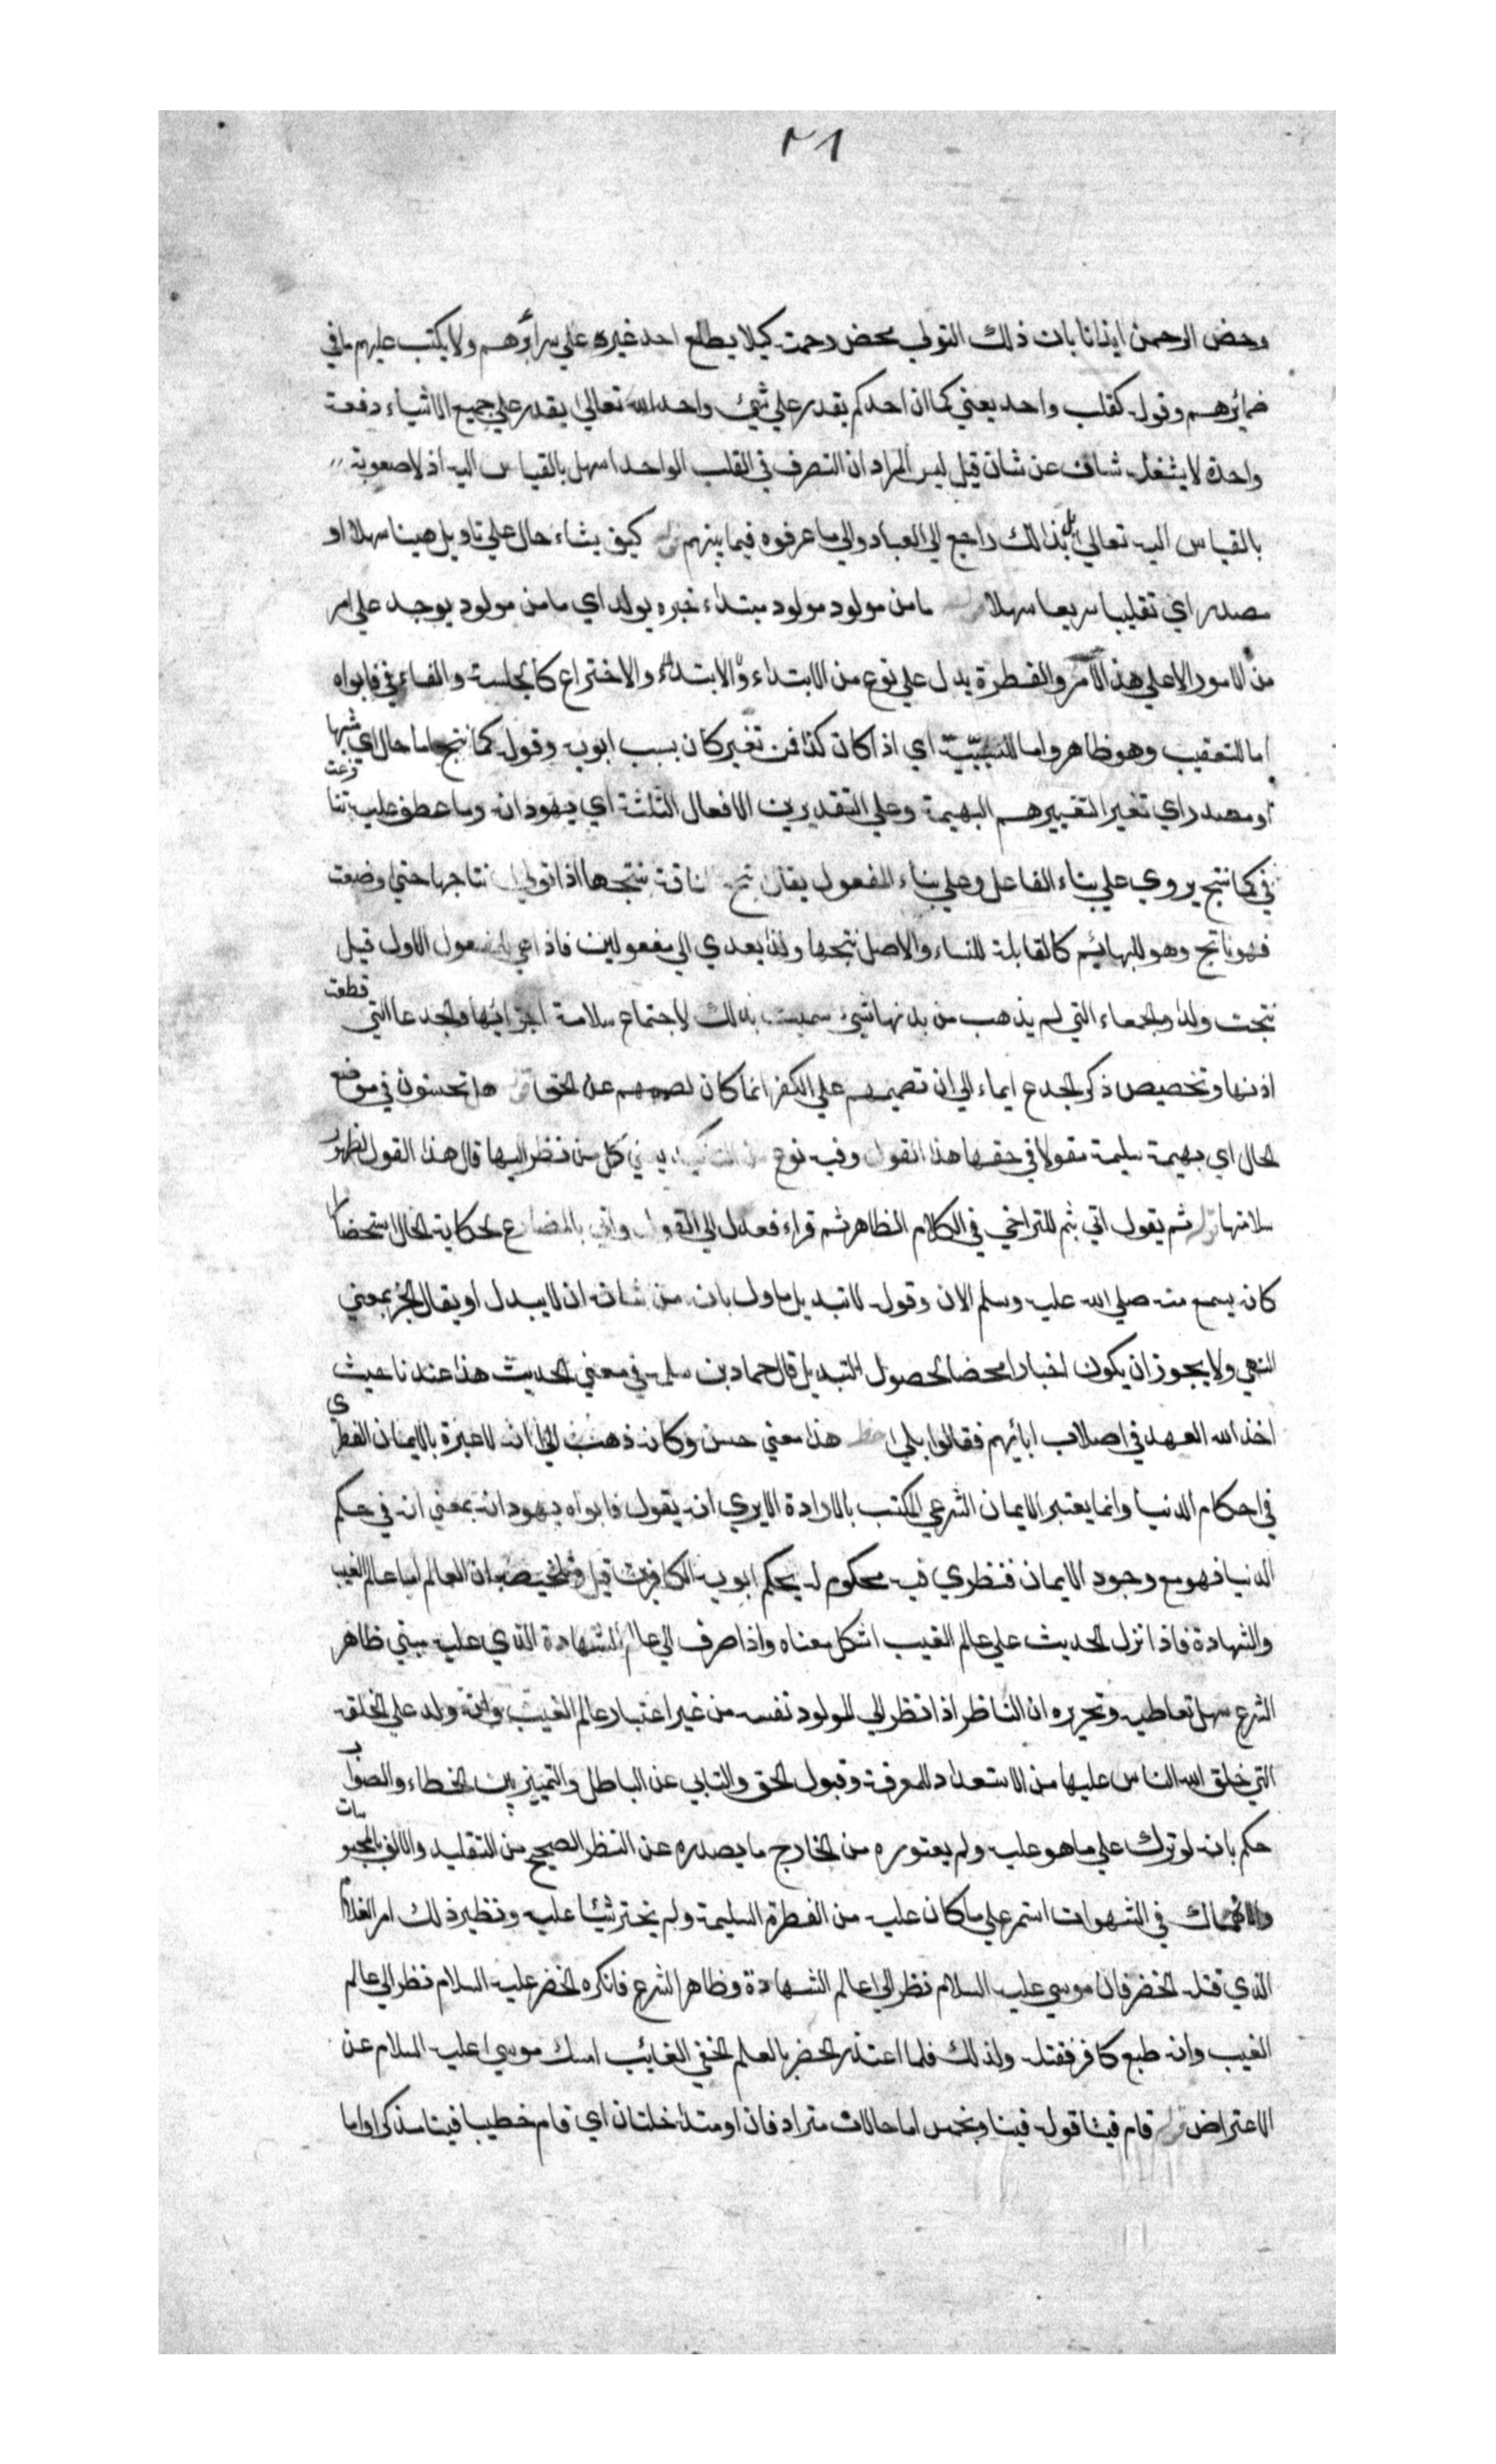 ٢١
وخص الرحمن ايذانا بان ذلك التولي محض رحمته كيلا يطلع احد غيره علي سرائرهم ولا يكتب عليهم ما في
ضمائرهم وقوله كقلب واحد يعني كما ان احدكم يقدر علي شيئ واحد الله تعالي يقدر علي جميع الاشياء دفعة
واحدة لا يشغله شان عن شان قيل ليس المراد ان التصرف في القلب الواحد اسهل بالقياس اليه اذ لا صعوبة
بالقياس اليه تعالي بل ذلك راجع الي العباد والي ما عرفوه فيما بينهم كيف يشاء حال علي تاويل هينا سهلا او
مصدر اي تقليبا سريعا سهلا ما من مولود مولود مبتداء خبره يولد اي ما من مولود يوجد علي امر
من الامور الا علي هذا الامر والفطرة يدل علي نوع من الابتداء والابتداء والاختراع كالجلسة والفاء في فابواه
اما للتعقيب وهو ظاهر واما للتسبيب اي اذا كان كذا فمن تغير كان بسبب ابويه وقوله كما تنتج اما حال اي مشبها
او مصدر اي تغيرا كتغييرهم البهيمة وعلي التقديرين الافعال الثلثة اي يهودانه وما عطف عليه تنازعت
في كما تنتج يروي علي بناء الفاعل وعلي بناء المفعول يقال نتج الناقة ينتجها اذا تولي نتاجها حتي وضعت
فهو ناتج وهو للبهائم كالقابلة للنساء والاصل نتجها ولدا يعدي الي مفعولين فاذا بني للمفعول الاول قيل
نتجت ولدا والجمعاء التي لم يذهب من بدنها شيئ سميت بذلك لاجتماع سلامة اجزائها والجدعا التي قطعت
اذنها وتخصيص ذكر الجدع ايماء الي ان تصميمهم علي الكفر انما كان لصممهم عن الحق هل تحسون في موضع
الحال اي بهيمة سليمة مقولا في حقها هذا القول وفيه نوع من التاكيد يعني كل من نظر اليها قال هذا القول لظهور
سلامتها ثم يقول اتي بثم للتراخي في الكلام الظاهر ثم قراء فعدل الي القول واتي بالمضارع لحكاية الحال استحضارا
كانه يسمع منه صلي الله عليه وسلم الان وقوله لا تبديل ماول بانه من شانه ان لا يبدل او يقال الخبر بمعني
النهي ولا يجوز ان يكون اخبارا محضا لحصول التبديل قال حماد بن سلمة في معني الحديث هذا عندنا حيث
اخذ الله العهد في اصلاب ابائهم فقالوا بلي هذا معني حسن وكانه ذهب الي انه لا عبرة بالايمان الفطري
في احكام الدنيا وانما يعتبر الايمان الشرعي المكتسب بالارادة الا يري انه يقول فابواه يهودانه بمعني انه في حكم
الدنيا فهو مع وجود الايمان فنظري فيه محكوم له بحكم ابويه الكافرين قيل وتلخيصه ان العالم اما عالم الغيب
والشهادة فاذا نزل الحديث علي عالم الغيب اشكل معناه واذا صرف الي عالم الشهادة الذي عليه مبني ظاهر
الشرع سهل تعاطيه وتحريره ان الناظر اذا نظر الي المولود نفسه من غير اعتبار عالم الغيب وانه ولد علي الخلقة
التي خلق الله الناس عليها من الاستعداد للمعرفة وقبول الحق والتابي عن الباطل والتمييز بين الخطاء والصواب
حكم بانه لو ترك علي ما هو عليه ولم يعتوره من الخارج ما يصدره عن النظر الصحيح من التقليد والالف بالمحبوسات
والانهماك في الشهوات استمر علي ما كان عليه من الفطرة السليمة ولم يختر شيئا عليه ونظير ذلك امر الغلام
الذي قتله الخضر فان موسي عليه السلام نظر الي عالم الشهادة وظاهر الشرع فانكره الخضر عليه السلام نظر الي عالم
الغيب وانه طبع كافر فقتله ولذلك فلما اعتذر الخضر بالعلم الخفي الغائب امسك موسي عليه السلام عن
الاعتراض قام فينا قوله فينا وبخمس اما حالات مترادفان او متداخلتان اي قام خطيبا فينا مذكرا واما